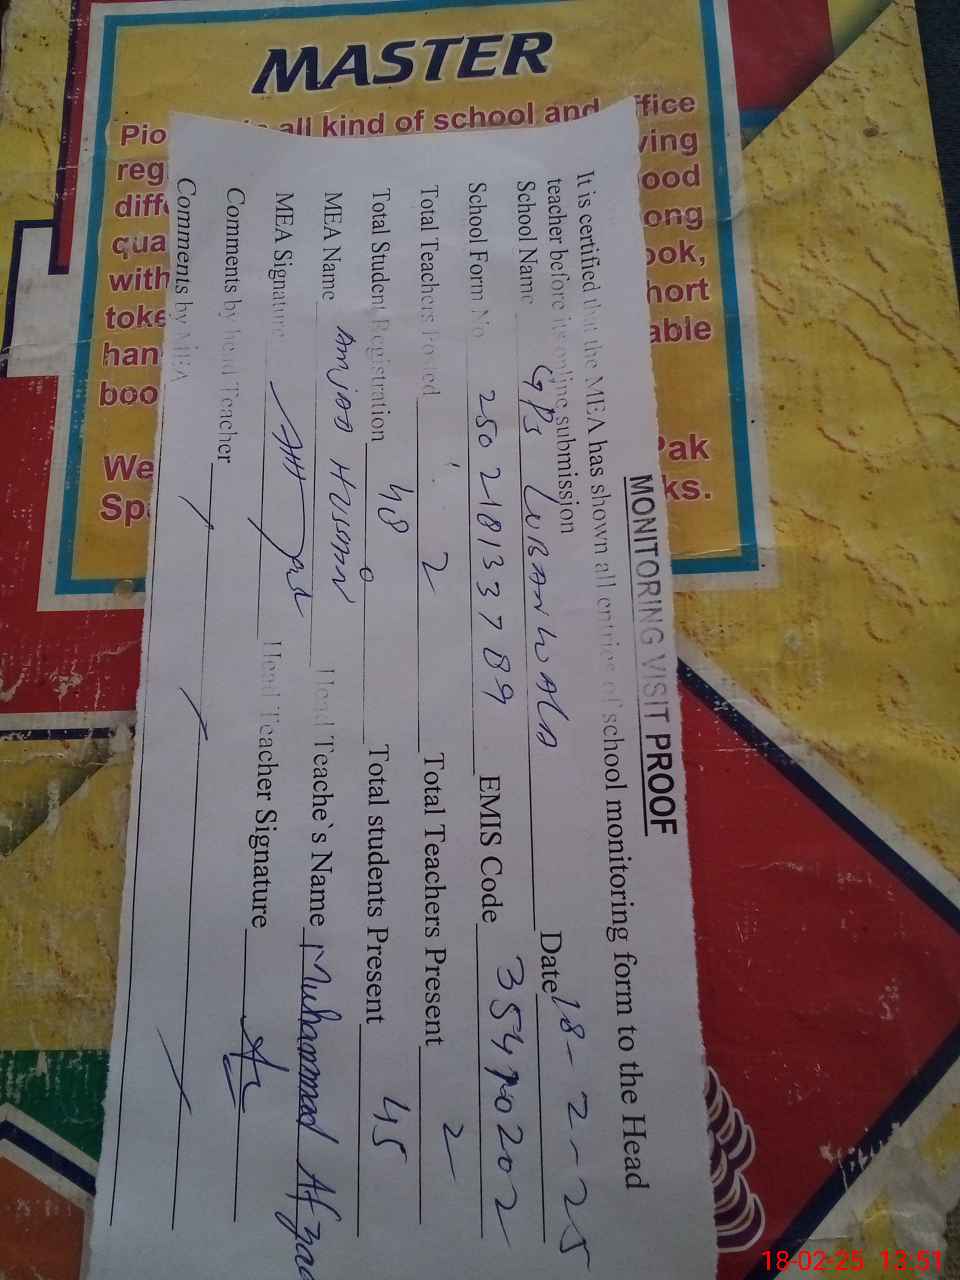 MASTER
all kind of school and
MONITORING VISIT PROOF
It is certified that the MEA has shown all entries of school monitoring form to the Head
teacher before its online submission
School Name GPS Date 18-2-25
School Form No. 250218133789 EMIS Code
Total Teachers Posted 2 Total Teachers Present 2
Total Student Registration 48 Total students Present 45
MEA Name Amjad Hussain Head Teache`s Name Muhammad Afzaal
MEA Signature Head Teacher Signature
Comments by head Teacher
Comments by MEA
18-02-25 13:51